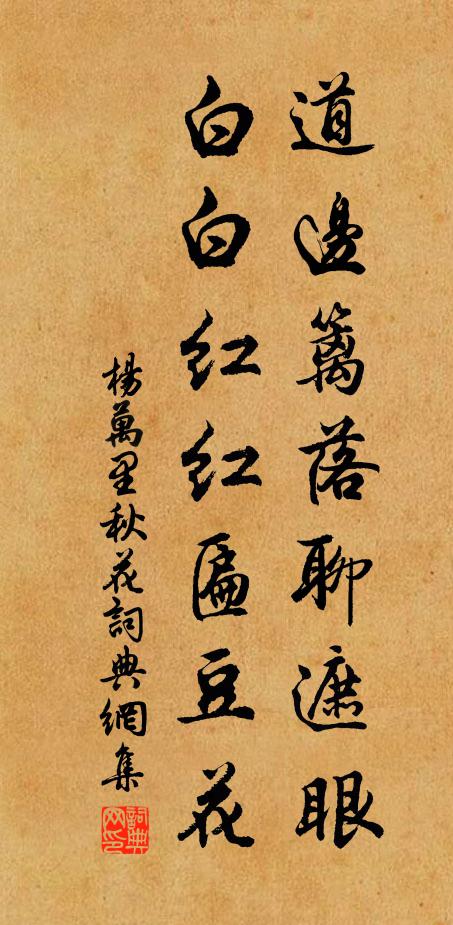 道邊籬落聊遮眼
白白紅紅匾豆花
楊萬里秋花詞典網集
詞典网印